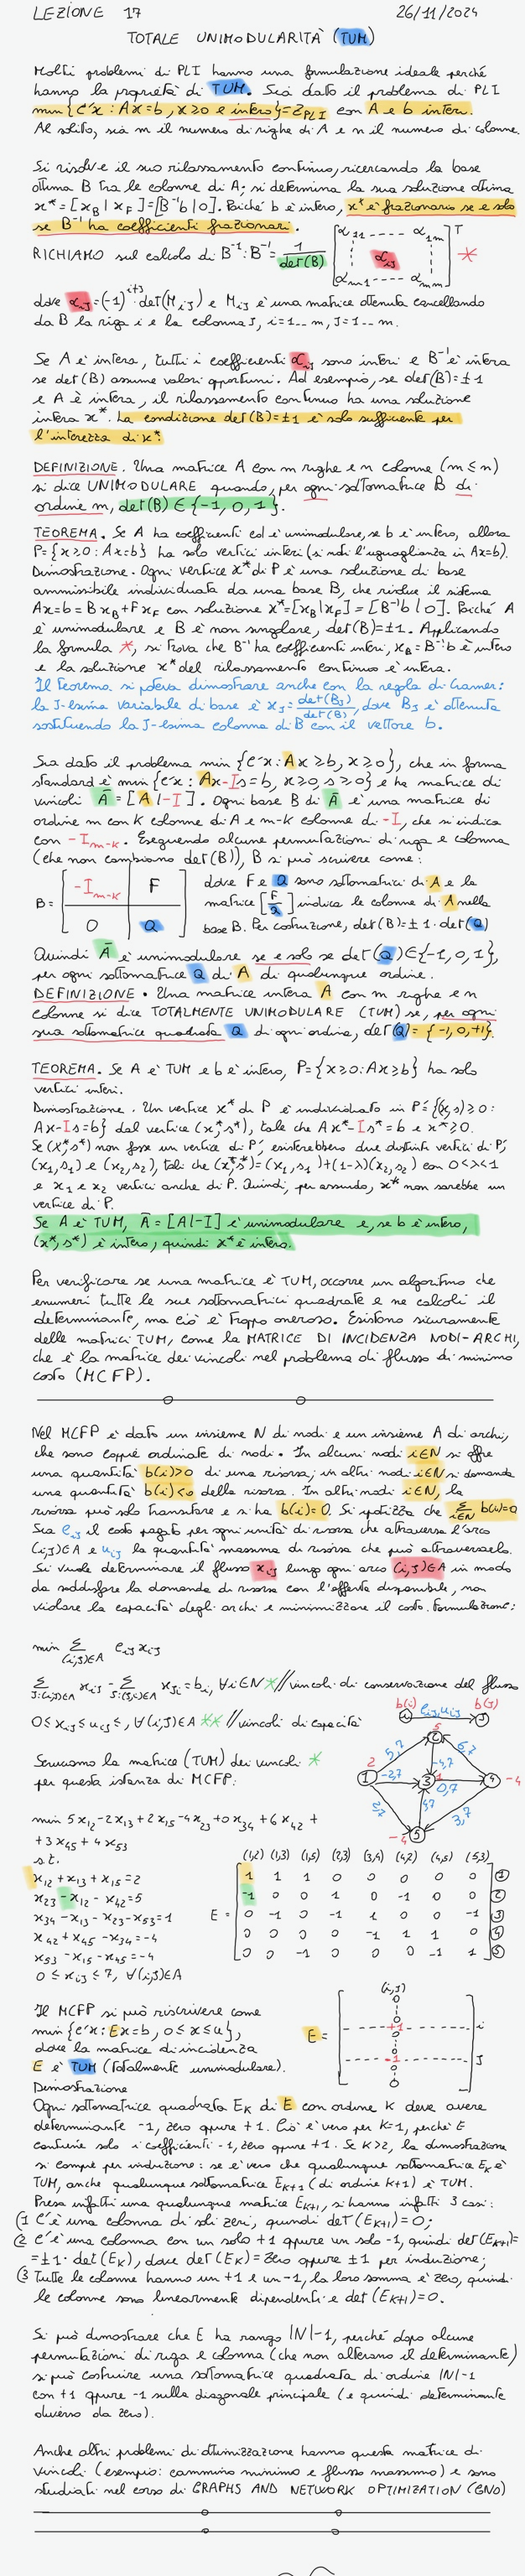 LEZIONE 17 26/11/2024
TOTALE UNIMODULARITÀ (TUM)
Molti problemi di PLI hanno una formulazione ideale perché
hanno la proprietà di TUM. Sia dato il problema di PLI
min{c'x : Ax=b, x≥0 e intero}=Z_PLI con A e b interi.
Al solito, sia m il numero di righe di A e n il numero di colonne.
Si risolve il suo rilassamento continuo, ricercando la base
ottima B tra le colonne di A; si determina la sua soluzione ottima
x*=[x_B | x_F]=[B⁻¹b | 0]. Poiché b è intero, x* è frazionario se e solo
se B⁻¹ ha coefficienti frazionari.
RICHIAMO sul calcolo di B⁻¹: B⁻¹ = 1/det(B) [α11 ---- α1m αij αm1 ---- αmm]^T *
dove αij=(-1)^(i+j) det(Mij) e Mij è una matrice ottenuta cancellando
da B la riga i e la colonna J, i=1..m, J=1..m.
Se A è intera, tutti i coefficienti αij sono interi e B⁻¹ è intera
se det(B) assume valori opportuni. Ad esempio, se det(B)=±1
e A è intera, il rilassamento continuo ha una soluzione
intera x*. La condizione det(B)=±1 è solo sufficiente per
l'interezza di x*.
DEFINIZIONE. Una matrice A con m righe e n colonne (m≤n)
si dice UNIMODULARE quando, per ogni sottomatrice B di
ordine m, det(B)∈{-1,0,1}.
TEOREMA. Se A ha coefficienti ed è unimodulare, se b è intero, allora
P={x≥0: Ax=b} ha solo vertici interi (si noti l'uguaglianza in Ax=b).
Dimostrazione. Ogni vertice x* di P è una soluzione di base
ammissibile individuata da una base B, che risolve il sistema
Ax=b=Bx_B+Fx_F con soluzione x*=[x_B|x_F]=[B⁻¹b|0]. Poiché A
è unimodulare e B è non singolare, det(B)=±1. Applicando
la formula *, si trova che B⁻¹ ha coefficienti interi, x_B=B⁻¹b è intero
e la soluzione x* del rilassamento continuo è intera.
Il teorema si poteva dimostrare anche con la regola di Cramer:
la J-esima variabile di base è x_J=det(B_J)/det(B), dove B_J è ottenuta
sostituendo la J-esima colonna di B con il vettore b.
Sia dato il problema min{c'x: Ax≥b, x≥0}, che in forma
standard è min{c'x: Ax-Is=b, x≥0, s≥0} e ha matrice di
vincoli Ā=[A|-I]. Ogni base B di Ā è una matrice di
ordine m con K colonne di A e m-K colonne di -I, che si indica
con -I_m-K. Eseguendo alcune permutazioni di riga e colonna
(che non cambiano det(B)), B si può scrivere come:
B= [-I_m-K F 0 Q] dove F e Q sono sottomatrici di A e la
matrice [F/Q] indica le colonne di A nella
base B. Per costruzione, det(B)=±1·det(Q)
Quindi Ā è unimodulare se e solo se det(Q)∈{-1,0,1},
per ogni sottomatrice Q di A di qualunque ordine.
DEFINIZIONE. Una matrice intera A con m righe e n
colonne si dice TOTALMENTE UNIMODULARE (TUM) se, per ogni
sua sottomatrice quadrata Q di ogni ordine, det(Q)={-1,0,+1}.
TEOREMA. Se A è TUM e b è intero, P={x≥0: Ax≥b} ha solo
vertici interi.
Dimostrazione. Un vertice x* di P è individuato in P'={(x,s)≥0:
Ax-Is=b} dal vertice (x*,s*), tale che Ax*-Is*=b e x*≥0.
Se (x*,s*) non fosse un vertice di P', esisterebbero due distinti vertici di P',
(x1,s1) e (x2,s2), tali che (x*,s*)=(x1,s1)+(1-λ)(x2,s2) con 0<λ<1
e x1 e x2 vertici anche di P. Quindi, per assurdo, x* non sarebbe un
vertice di P.
Se A è TUM, Ā=[A|-I] è unimodulare e, se b è intero,
(x*,s*) è intero, quindi x* è intero.
Per verificare se una matrice è TUM, occorre un algoritmo che
enumeri tutte le sue sottomatrici quadrate e ne calcoli il
determinante, ma ciò è troppo oneroso. Esistono sicuramente
delle matrici TUM, come la MATRICE DI INCIDENZA NODI-ARCHI,
che è la matrice dei vincoli nel problema di flusso di minimo
costo (MCFP).
Nel MCFP è dato un insieme N di nodi e un insieme A di archi,
che sono coppie ordinate di nodi. In alcuni nodi i∈N si offre
una quantità b(i)>0 di una risorsa; in altri nodi i∈N si domanda
una quantità b(i)<0 della risorsa. In altri nodi i∈N, la
risorsa può solo transitare e si ha b(i)=0. Si ipotizza che Σ_i∈N b(i)=0
Sia cij il costo pagato per ogni unità di risorsa che attraversa l'arco
(i,J)∈A e uij la quantità massima di risorsa che può attraversarlo.
Si vuole determinare il flusso xij lungo ogni arco (i,J)∈A in modo
da soddisfare la domanda di risorsa con l'offerta disponibile, non
violare la capacità degli archi e minimizzare il costo. Formulazione:
min Σ_(i,J)∈A cij xij
Σ_J:(i,J)∈A xij - Σ_J:(J,i)∈A xJi = bi, ∀i∈N * // vincoli di conservazione del flusso
0≤xij≤uij, ∀(i,J)∈A ** // vincoli di capacità
b(i) cij,uij b(J)
i J
Scriviamo la matrice (TUM) dei vincoli *
per questa istanza di MCFP:
5 2 5,7 6,7 2 1 -2,7 -4,7 3 1 0,7 4 -4 2,7 4,7 3,7 -4 5
min 5x12-2x13+2x15-4x23+0x34+6x42+
+3x45+4x53
s.t.
x12+x13+x15=2
x23-x12-x42=5
x34-x13-x23-x53=1
x42+x45-x34=-4
x53-x15-x45=-4
0≤xij≤7, ∀(i,J)∈A
(1,2) (1,3) (1,5) (2,3) (3,4) (4,2) (4,5) (5,3)
1 1 1 0 0 0 0 0 1
-1 0 0 1 0 -1 0 0 2
E = 0 -1 0 -1 1 0 0 -1 3
0 0 0 0 -1 1 1 0 4
0 0 -1 0 0 0 -1 1 5
Il MCFP si può riscrivere come
min{c'x: Ex=b, 0≤x≤u},
dove la matrice di incidenza
E è TUM (totalmente unimodulare).
(i,J)
E= 0 0 +1 i 0 -1 J 0
Dimostrazione
Ogni sottomatrice quadrata E_K di E con ordine K deve avere
determinante -1, zero oppure +1. Ciò è vero per K=1, perché E
contiene solo i coefficienti -1, zero oppure +1. Se K>2, la dimostrazione
si compie per induzione: se è vero che qualunque sottomatrice E_K è
TUM, anche qualunque sottomatrice E_K+1 (di ordine K+1) è TUM.
Presa infatti una qualunque matrice E_K+1, si hanno infatti 3 casi:
(1 C'è una colonna di soli zeri, quindi det(E_K+1)=0;
(2 C'è una colonna con un solo +1 oppure un solo -1, quindi det(E_K+1)=
=±1·det(E_K), dove det(E_K)=zero oppure ±1 per induzione;
(3 Tutte le colonne hanno un +1 e un -1, la loro somma è zero, quindi
le colonne sono linearmente dipendenti e det(E_K+1)=0.
Si può dimostrare che E ha rango |N|-1, perché dopo alcune
permutazioni di riga e colonna (che non alterano il determinante)
si può costruire una sottomatrice quadrata di ordine |N|-1
con +1 oppure -1 sulla diagonale principale (e quindi determinante
diverso da zero).
Anche altri problemi di ottimizzazione hanno questa matrice di
vincoli (esempio: cammino minimo e flusso massimo) e sono
studiati nel corso di GRAPHS AND NETWORK OPTIMIZATION (GNO)